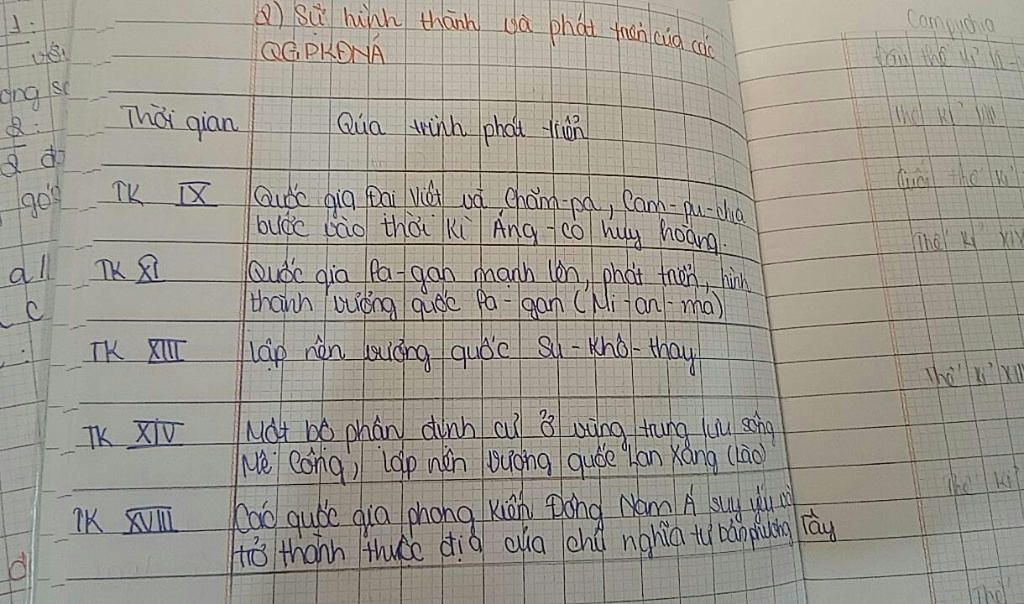 2) Sự hình thành và phát triển của các
QGPKĐNÁ
Thời gian Qúa trình phát triển
TK IX Quốc gia Đại Việt và Chăm-pa, Cam-pu-chia
bước vào thời kì Ăng-co huy hoàng.
TK XI Quốc gia Pa-gan mạnh lên, phát triển, hình
thành vương quốc Pa-gan (Mi-an-ma)
TK XIII Lập nên vương quốc Su-khô-thay
TK XIV Một bộ phận định cư ở vùng trung lưu sông
Mê Công, lập nên vương quốc Lan Xang (Lào)
TK XVIII Các quốc gia phong kiến Đông Nam Á suy yếu và
trở thành thuộc địa của chủ nghĩa tư bản phương Tây
Campuchia
Thế kỉ XIV
Thế kỉ